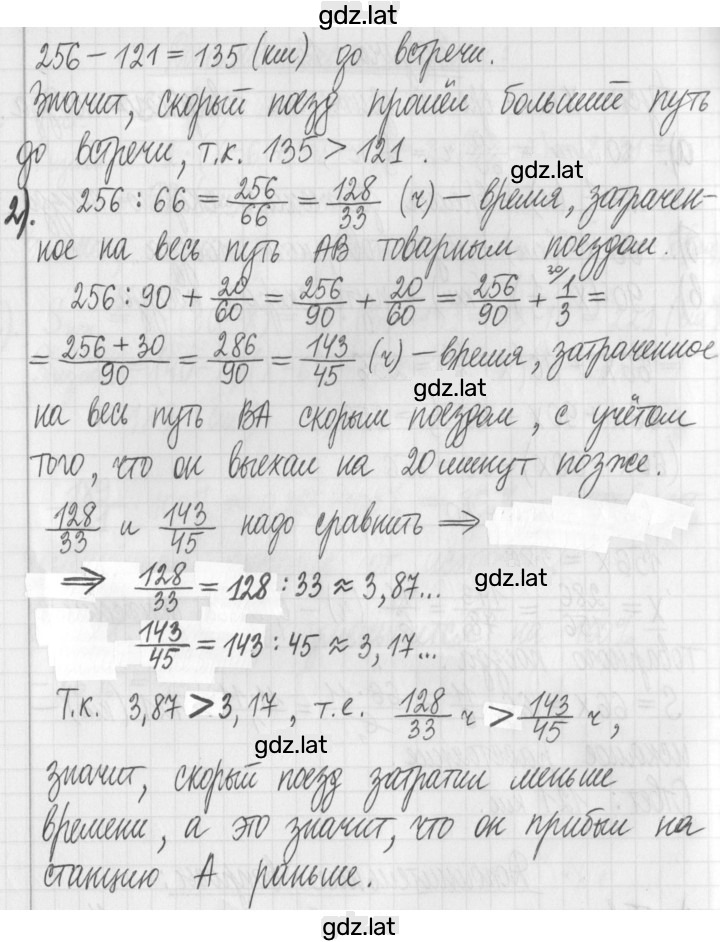 gdz.lat
256 - 121 = 135 (км) до встречи.
Значит, скорый поезд прошёл больший путь
до встречи, т.к. 135 > 121.
gdz.lat
2). 256 : 66 = 256/66 = 128/33 (ч) — время, затрачен-
ное на весь путь АВ товарным поездом.
256 : 90 + 20/60 = 256/90 + 20/60 = 256/90 + 30/ 1/3 =
= 256 + 30/90 = 286/90 = 143/45 (ч) — время, затраченное
gdz.lat
на весь путь ВА скорым поездом, с учётом
того, что он выехал на 20 минут позже.
128/33 и 143/45 надо сравнить ⇒
⇒ 128/33 = 128 : 33 ≈ 3,87...
gdz.lat
143/45 = 143 : 45 ≈ 3,17...
Т.к. 3,87 > 3,17, т.е. 128/33 ч > 143/45 ч,
gdz.lat
значит, скорый поезд затратил меньше
времени, а это значит, что он прибыл на
станцию А раньше.
gdz.lat